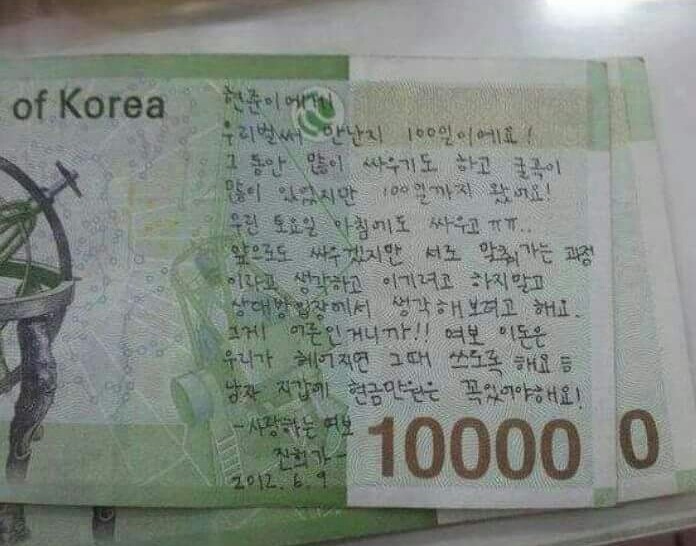 of Korea
현준이에게
우리벌써 만난지 100일이에요!
그 동안 많이 싸우기도 하고 굴곡이
많이 있었지만 100일까지 왔어요!
우린 토요일 아침에도 싸우고 ㅠㅠ..
앞으로도 싸우겠지만 서로 맞춰가는 과정
이라고 생각하고 이기려고 하지말고
상대방입장에서 생각해보려고 해요.
그게 어른인거니까!! 여보 이돈은
우리가 헤어지면 그때 쓰도록 해요
남자 지갑에 현금만원은 꼭있어야해요!
-사랑하는 여보
진희가-
2012. 6. 9
10000
0